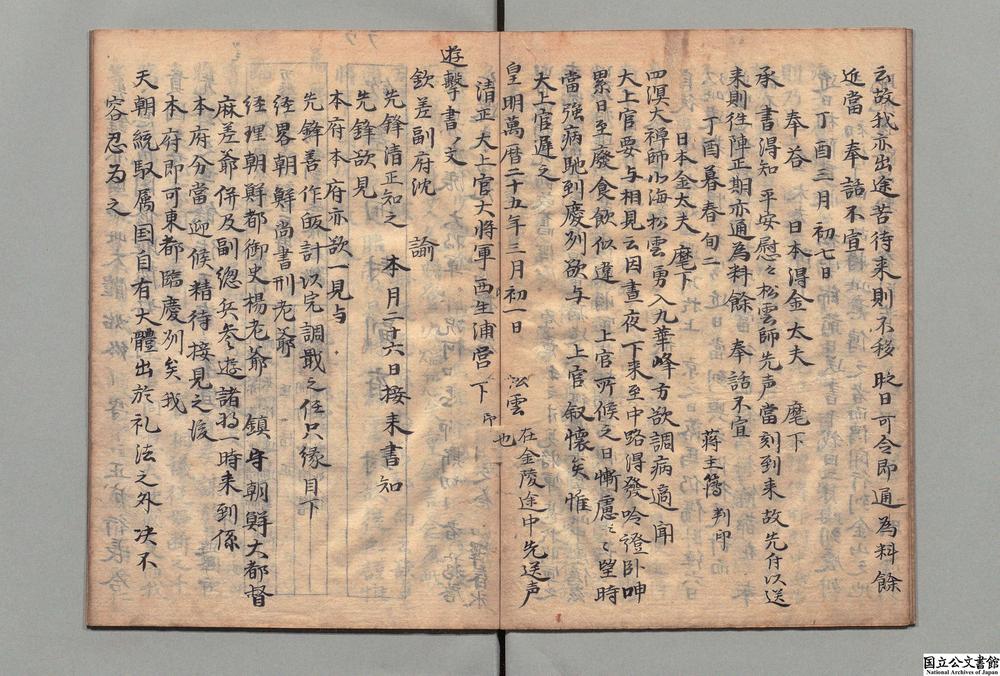 云故我亦出途苦待来則不移 昳日可令即通為料餘
近當奉 話不宣
丁酉三月初七日
奉荅 日本得金太夫 麾下
承 書得知 平安慰々松雲師先声當刻到来故先付以送
来則徃陣正期亦通為料餘 奉話不宣
丁酉暮春旬二 蒋主簿 判印
日本金太夫 麾下
四溟大禅師北海松雲勇入九華峰方欲調病適聞
大上官要与相見云因晝夜下来至中路得發吟證卧呻
累日至廢食飲似違 上官所候之日慚慮々々望時
當強病馳到慶列欲与 上官叙懷矣惟
大上官遅之
皇明萬暦二十五年三月初一日 松雲 在金陵途中先送声
也
清正大上官大將軍西生浦営下 印
遊擊書文
欽差副府沈 諭
先鋒清正知之 本月二十六日接来書知
先鋒欲見
本府本府亦欲一見与
先鋒善作皈計以完調戢之任只縁目下
経畧朝鮮尚書刑老爺
経理朝鮮都御史楊老爺 鎮守朝鮮大都督
麻差爺併及副総兵参遊諸将一時来到係
本府分當迎候精待接見之後
本府即可東都臨慶列矣我
天朝統馭属国自有大體出於礼法之外决不
容忍为之
国立公文書館
National Archives of Japan